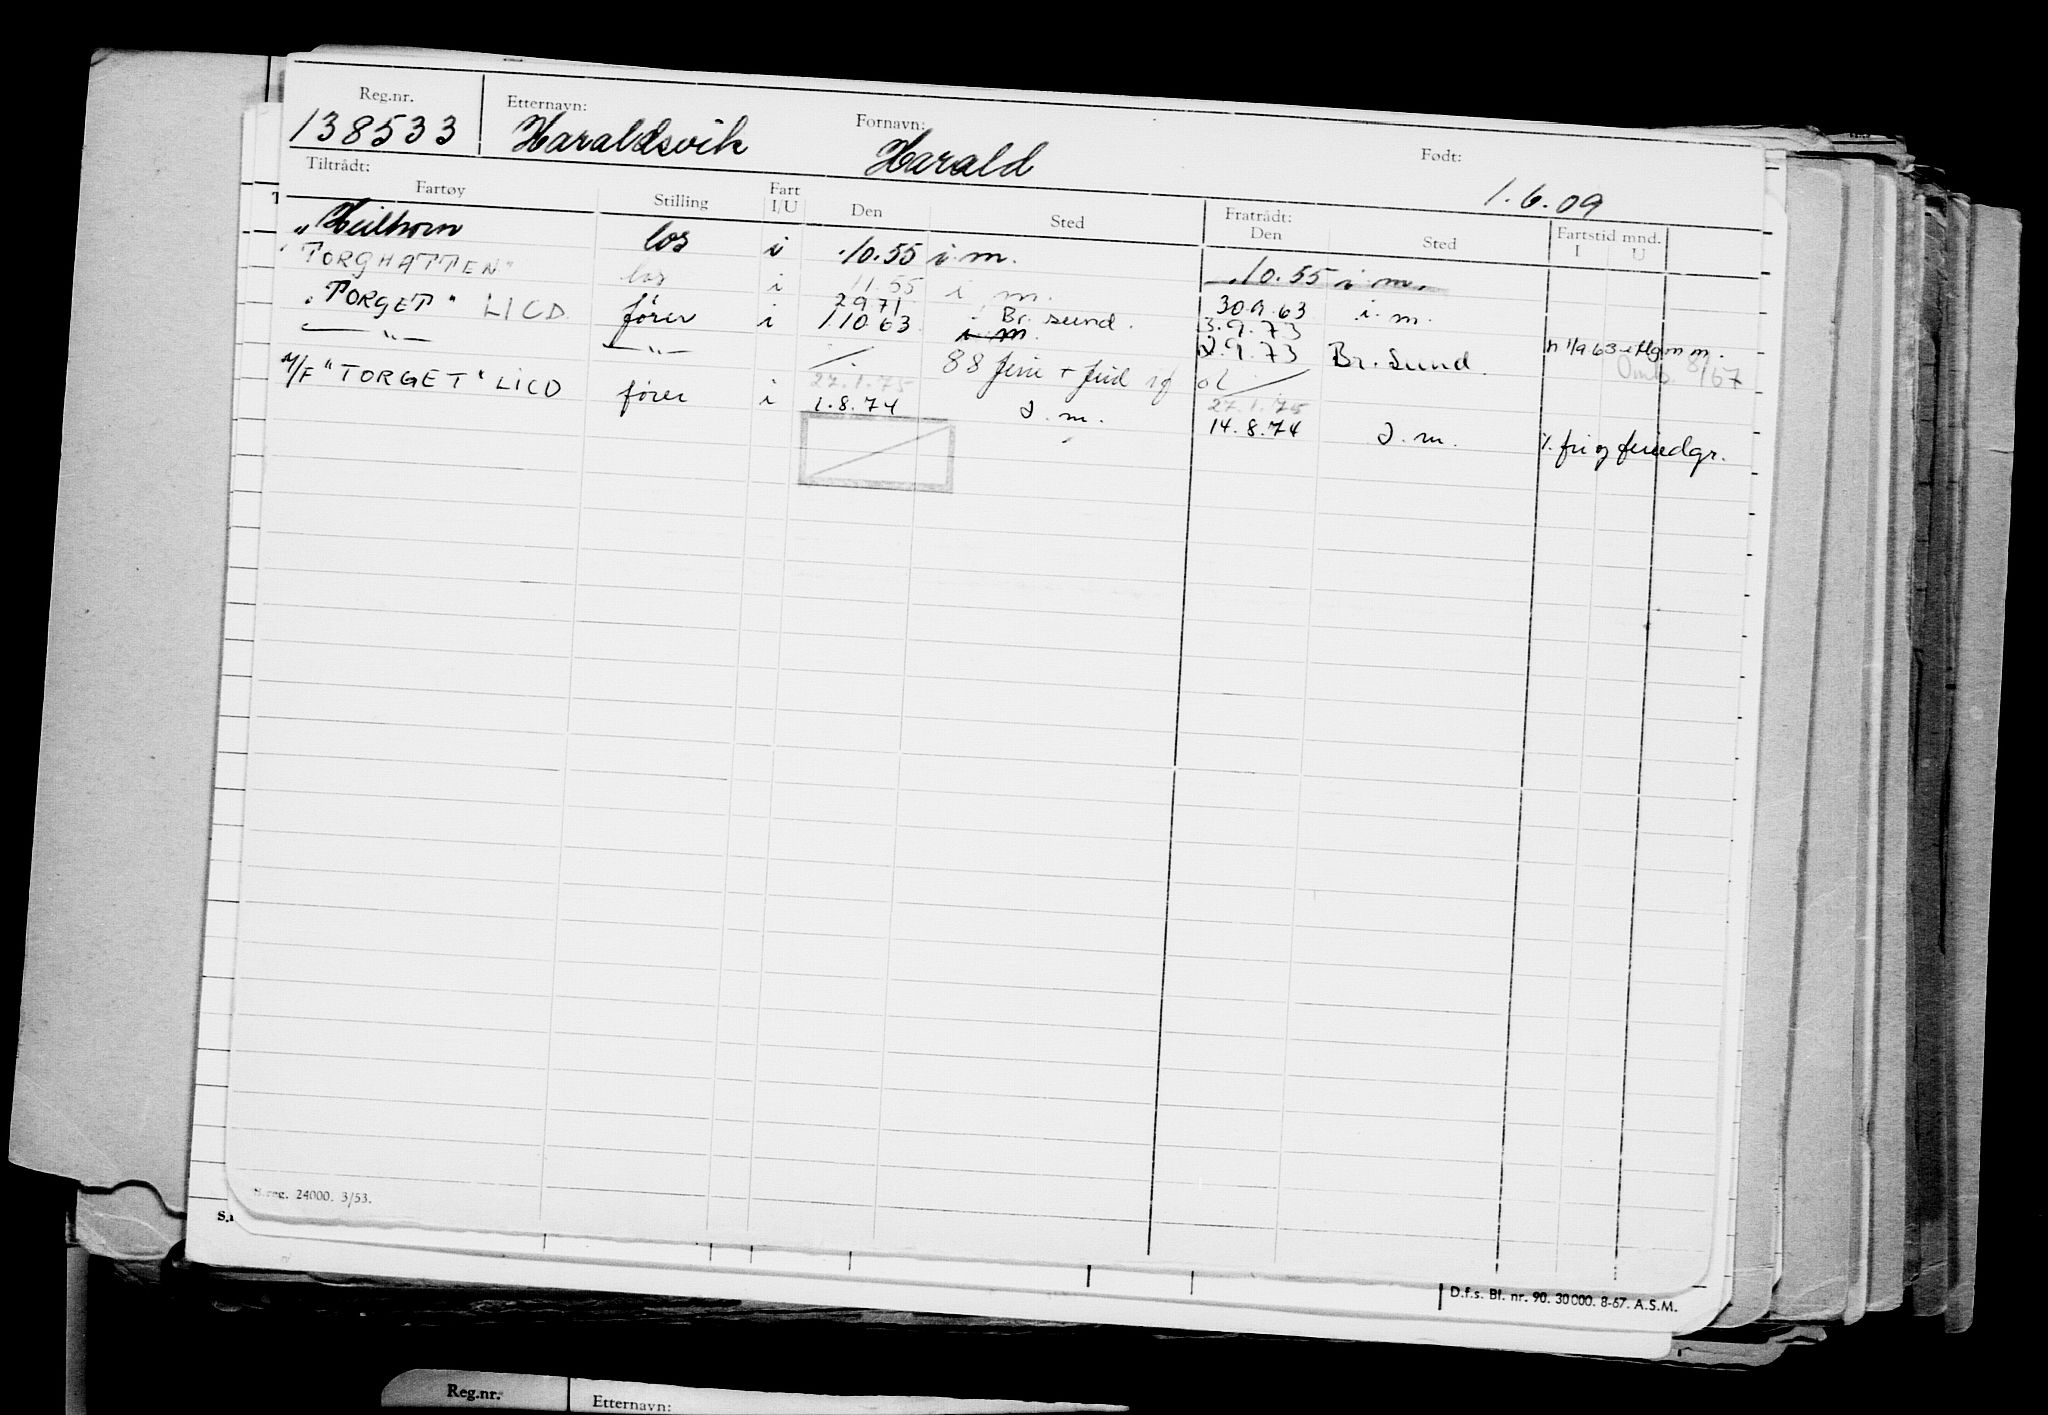 Reg.nr. Etternavn: Fornavn: Født:
138533 Haraldsvik Harald 1.6.09
Tiltrådt: Fratrådt:
Fartøy Stilling Fart I/U Den Sted Den Sted Fartstid mnd. I U
"Heilhorn los i .10.55 i.m. .10.55 i.m.
"TORGHATTEN" los i 11.55 i m. 30.9.63 i.m.
"TORGET" LICD fører i 2971 Br. sund. 3.9.73
—"— —"— 1.10.63 i m. 2.9.73 Br. Sund. Omb. 8/67
88 ferie + frid
M/F "TORGET" LICD fører i 27.1.75 27.1.75
1.8.74 I.m. 14.8.74 I.m. ÷ fri og feriedgr.
S.reg. 24000. 3/53.
D.f.s. Bl. nr. 90. 30000. 8-67. A.S.M.
Reg.nr. Etternavn: